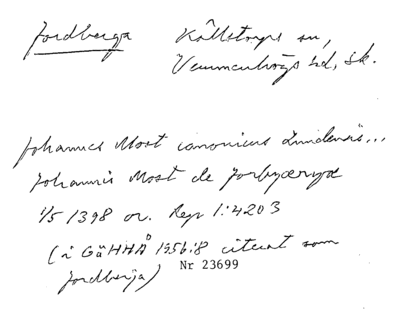 Jordberga Källstorps sn,
Vemmenhögs hd, Sk.
Johannes Most canonicus Lundensis...
Johannis Most de Jorbyærgæ
1/5 1398 or. Rep 1:4203
(i GäHHÅ 1956:8 citerat som
Jordberja) Nr 23699